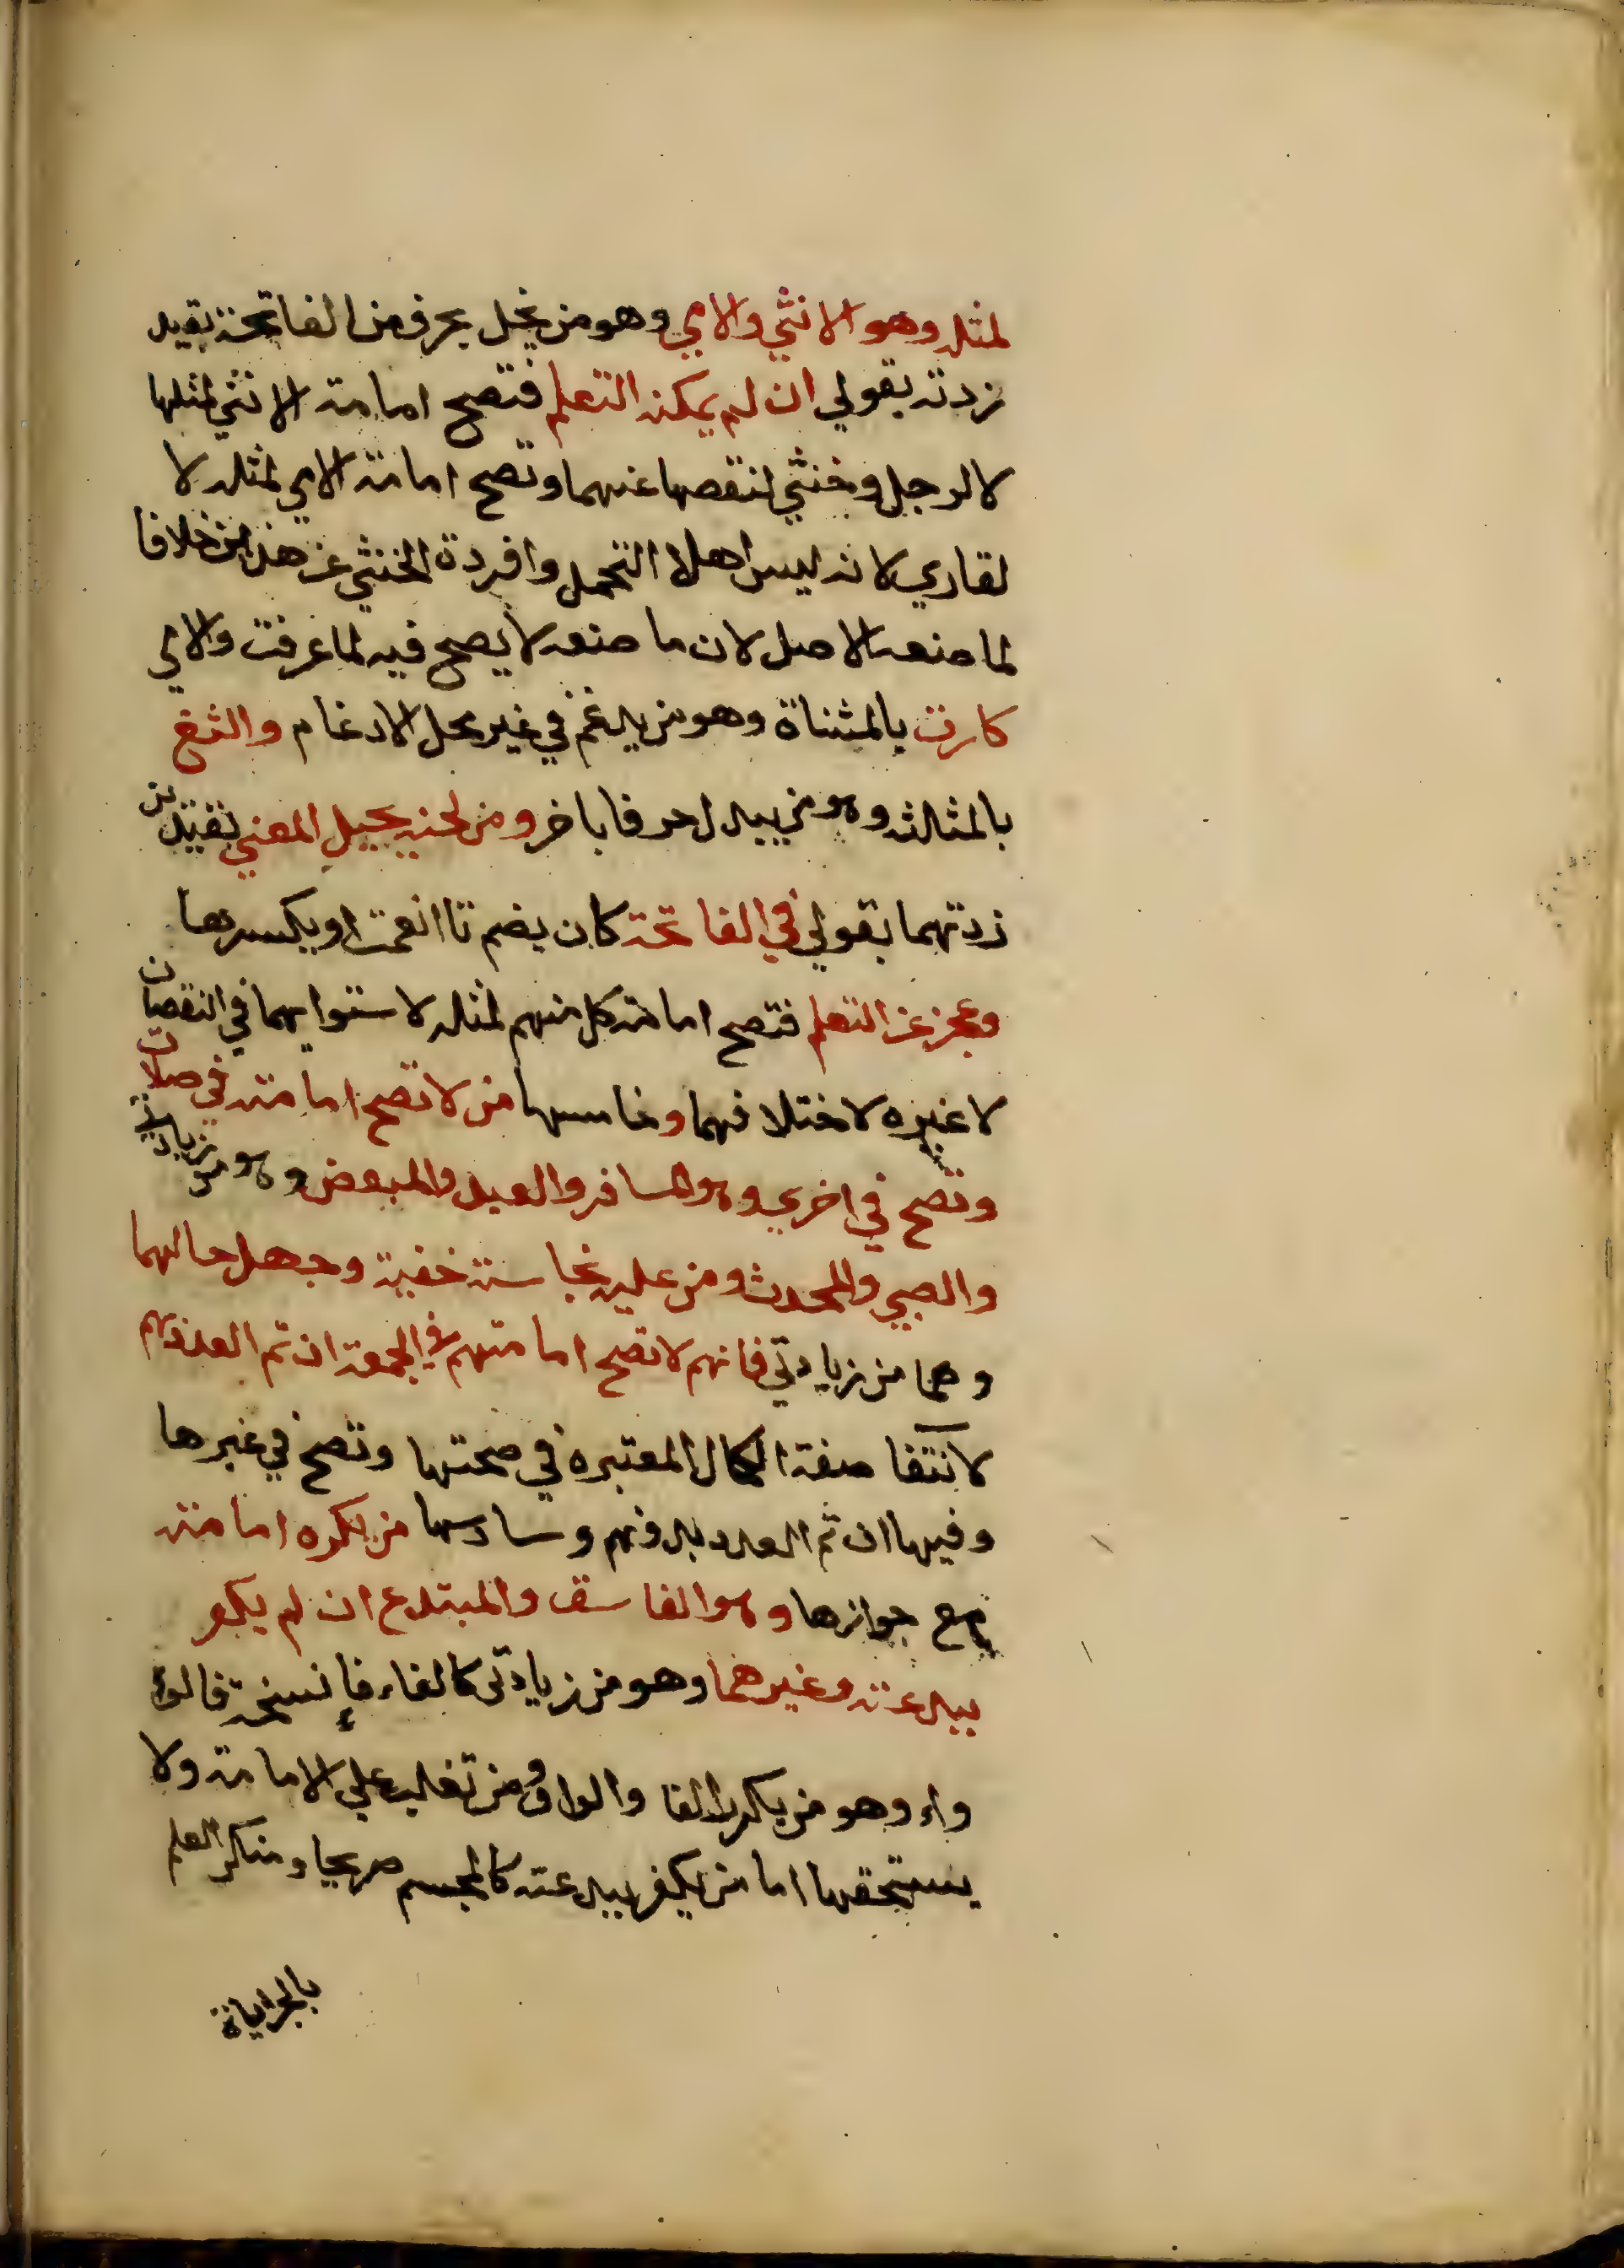 لمثله وهو الانثي والامي وهو من يخل بحرف من الفاتحة بقيد
زدته بقولي ان لم يمكنه التعلم فتصح امامة الانثي لمثلها
لا لرجل وخنثي لنقصها عنهما وتصح امامة الامي لمثله لا
لقاري لانه ليس اهلا التحمل وافردة الخنثي عن هذين خلافا
لما صنعه الاصل لان ما صنعه لا يصح فيه لما عرفت والامي
كارت بالمثناة وهو من يدغم في غير محل الادغام والثغ
بالمثالثه وهو من يبدل حرفا باخر ومن لحنه يحيل المعني بقيدين
زدتهما بقولي في الفاتحة كان يضم تا انعمت او يكسرها
وعجز عن التعلم فتصح امامة كل منهم لمثله لاستوايهما في النقصان
لا غيره لاختلافهما وخامسها من لا تصح امامته في صلات
وتصح في اخري وهو المسافر والعبد والمبعض وهو من زيادتي
والصبي والمحدث ومن عليه نجاسة خفية وجهل حالهما
وهما من زيادتي فانهم لا تصح امامتهم في الجمعة ان تم العدد بهم
لانتفا صفة الكمال المعتبره في صحتها وتصح في غيرها
وفيها ان تم العدد بدونهم وسادسها من يكره امامته
مع جوازها وهو الفاسق والمبتدع ان لم يكفر
ببدعته وغيرهما وهو من زيادتي كالفاء فإ نسخة فالوا
واء وهو من يكرر الفا والواو ومن تغلب علي الامامة ولا
يستحقها اما من يكفر ببدعته كالمجسم صريحا ومنكر العلم
بالجزياة